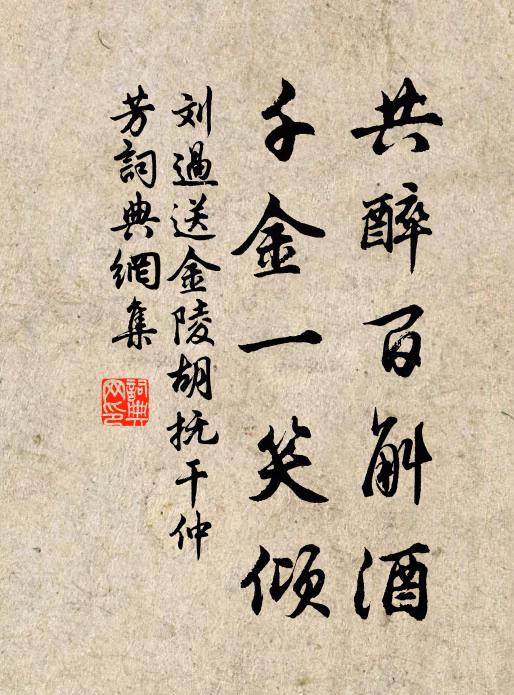 共醉百斛酒
千金一笑倾
刘過送金陵胡抚干仲
芳詞典網集
詞典网印